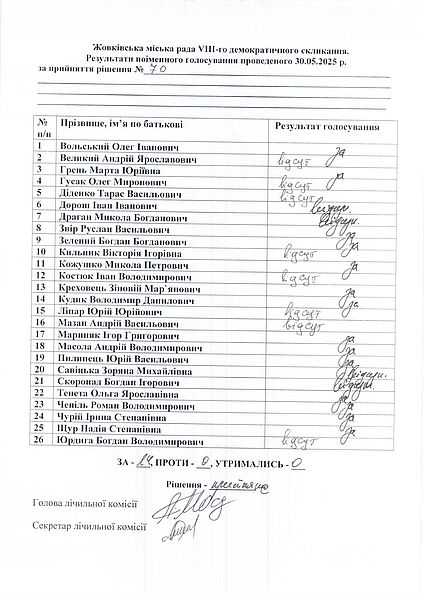 Жовківська міська рада VIII-го демократичного скликання.
Результати поіменного голосування проведеного 30.05.2025 р.
за прийняття рішення № 70
№ п/п Прізвище, ім’я по батькові Результат голосування
1 Вольський Олег Іванович за
2 Великий Андрій Ярославович відсут
3 Грень Марта Юріївна за
4 Гусак Олег Миронович відсут
5 Діденко Тарас Васильович відсут
6 Дорош Іван Іванович
7 Драган Микола Богданович
8 Звір Руслан Васильович за
9 Зелений Богдан Богданович за
10 Кильник Вікторія Ігорівна відсут
11 Кожушко Микола Петрович за
12 Костюк Іван Володимирович відсут
13 Креховець Зіновій Мар`янович за
14 Кудик Володимир Данилович за
15 Ліпар Юрій Юрійович відсут
16 Мазан Андрій Васильович відсут
17 Мариняк Ігор Григорович за
18 Маєола Андрій Володимирович за
19 Пилипець Юрій Васильович за
20 Савіцька Зоряна Михайлівна
21 Скоропад Богдан Ігорович
22 Тенета Ольга Ярославівна за
23 Чепіль Роман Володимирович за
24 Чурій Ірина Степанівна за
25 Щур Надія Степанівна за
26 Юрдига Богдан Володимирович відсут
ЗА - 14, ПРОТИ - 0, УТРИМАЛИСЬ - 0
Рішення - прийняте
Голова лічильної комісії
Секретар лічильної комісії